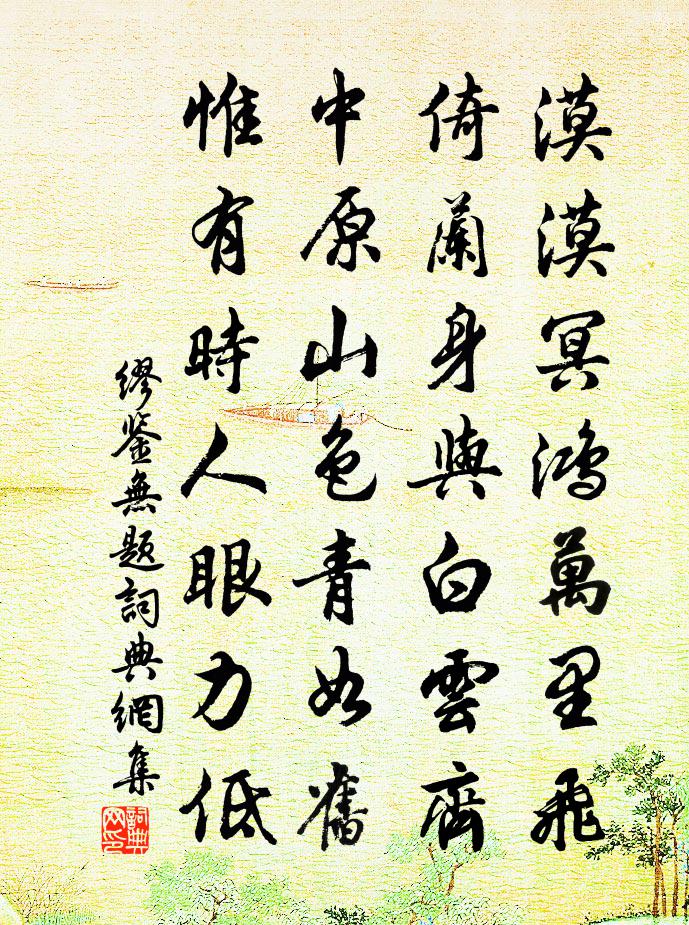 漠漠冥鴻萬里飛
倚蘭身與白雲齊
中原山色青如舊
惟有時人眼力低
繆鉴無題詞典網集
詞典网印